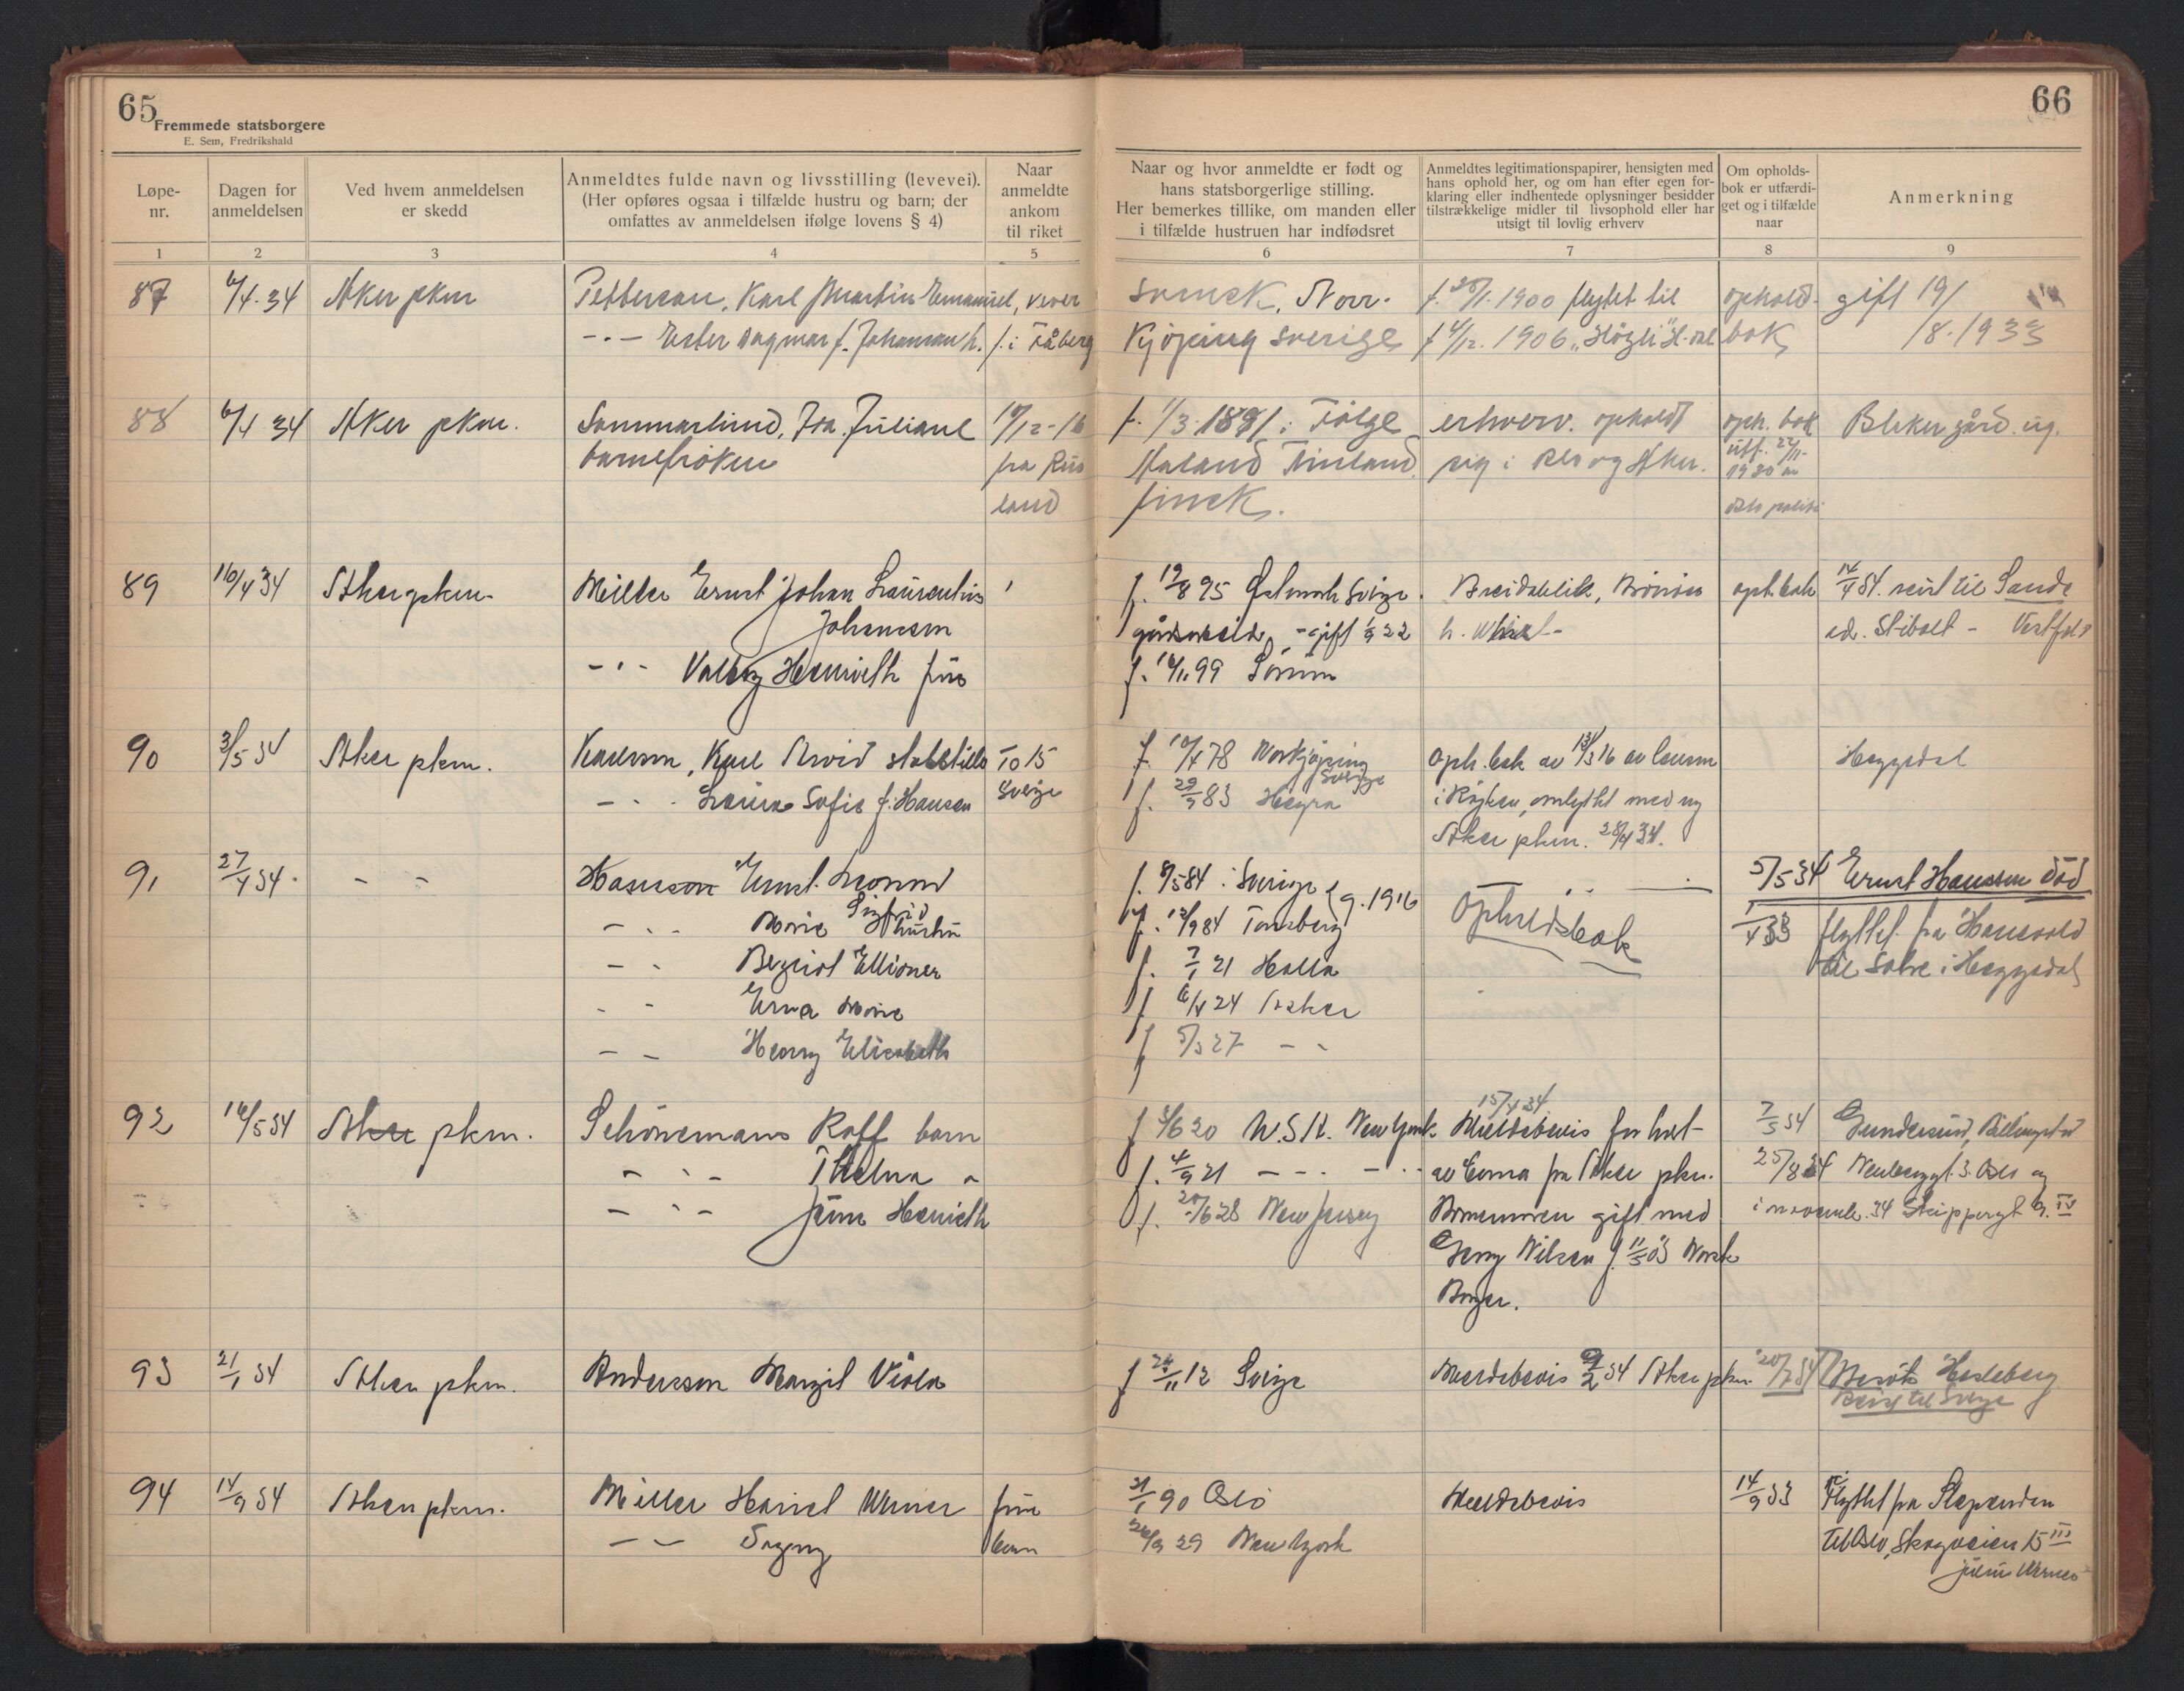 65
Fremmede statsborgere
E. Sem, Fredrikshald
Løpe-
nr.
Dagen for
anmeldelsen
Ved hvem anmeldelsen
er skedd
Anmeldtes fulde navn og livsstilling (levevei).
(Her opføres ogsaa i tilfælde hustru og barn; der
omfattes av anmeldelsen ifølge lovens § 4)
Naar
anmeldte
ankom
til riket
1 2 3 4 5
87 6/4-34 Aker pkm Pettersen, Karl Martin Emanuel, vever
-"- Ester Dagmar f. Johansen h. f. i Fåberg
88 6/4 34 Aker pkm. Sommarlund, Ida Juliane 19/12-16
barnefrøken fra Rus
land
89 10/4 34 Asker pkm. Miller Ernst Johan Laurentius
Johansson
-"- Valborg frue
90 3/5 34 Asker pkm. Karlsson, Karl Arvid To 15
- " - Laura Sofie f. Hansen Sverige
91 27/4 34. - - Hansson Ernst
- " - Marie Sigfrid hustru
- " Bergliot Ellionor
- " Erna Marie
- - Henny Elisabeth
92 16/5 34 Asker pkm. Schönemans Rolf barn
- " - Thelma "
- " -
93 21/1 34 Asker pkm. Andersson Margit Viola
94 14/9 34 Asker pkm. Miller Werner frue
- - barn
66
Naar og hvor anmeldte er født og
hans statsborgerlige stilling.
Her bemerkes tillike, om manden eller
i tilfælde hustruen har indfødsret
Anmeldtes legitimationspapirer, hensigten med
hans ophold her, og om han efter egen for-
klaring eller indhentede oplysninger besidder
tilstrækkelige midler til livsophold eller har
utsigt til lovlig erhverv
Om opholds-
bok er utfærdi-
get og i tilfælde
naar
Anmerkning
6 7 8 9
svensk, Norr- f. 28/1.1900 flyttet til ophold- gift 19/
kjöping Sverige f 4/12.1906 bok 8.1933
f. 1/3.1891 i Følge erhverv. opholdt oph. bok
Finland sig i Oslo og Aker. utf. 22/11-
finsk. 1930 av
Oslo politi
f. 19/8 95 Sverige. Breidablik, oph. bok 14/4 34. reist til Sande
gift 1/9 22 Vestfold
f. 16/11 99 Sørum
f. 10/4 78 Norkjøping Oph.bok av 13/3 16 av lensm Heggedal
Sverige
f. 29/9 83 Hegra i Røyken, ombyttet med ny
Asker pkm. 28/4 34.
f. 8/5 84 i Sverige g. 1916 5/5 34 Ernst Hansson död
f. 12/9 84 Tønsberg Opholdsbok 1/4 33 flyttet fra
f. 7/1 21 Holla til Solve i Heggedal
f 6/4 24 Asker
f 5/3 27 - "
15/4 34
f 3/6 20 U.S.A. New York Meldebevis for 7/5 34 Gunderud, Billingstad
f. 4/9 21 - - " - " av Erna fra Asker pkm. 25/8 34 3. Oslo og
f. 20/6 28 New Jersey Barnemoren gift med i november. 34 Skippergt 9. IV
Georg Nilsen f. 11/5 03 Norsk
Borger.
f 24/11 12 Sverige Meldebevis 9/2 34 Asker pkm. 20/7 34 Besøk Hesleberg
Reist til Sverige
31/1 90 Oslo Meldebevis 14/9 33 Flyttet fra Slependen
26/9 29 New York til Oslo, Skogveien 15 III